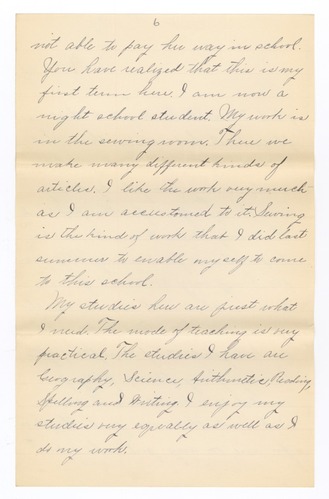 6
not able to pay her way in school.
You have realized that this is my
first term here. I am now a
night school student. My work is
in the sewing room. There we
make many different kinds of
articles. I like the work very much
as I am accustomed to it. Sewing
is the kind of work that I did last
summer to enable myself to come
to this school.
My studies here are just what
I need. The mode of teaching is very
practical. The studies I have are
Geography, Science, Arithmetic, Reading,
Spelling and Writing. I enjoy my
studies very equally as well as I
do my work.